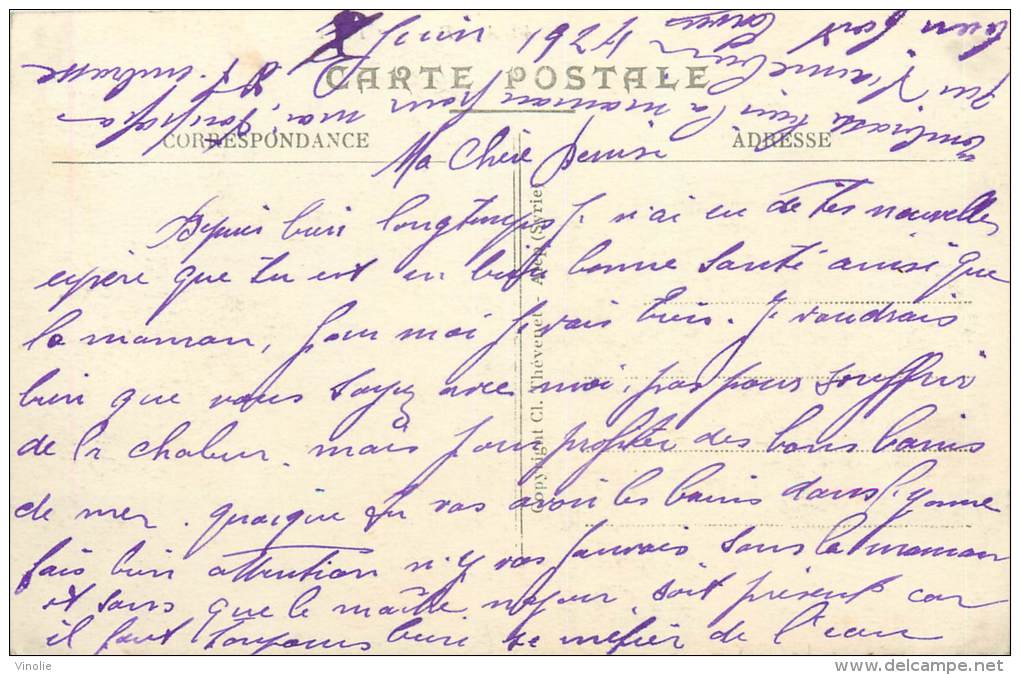 7 Juin 1921
CARTE POSTALE
CORRESPONDANCE
ADRESSE
Ma Chère Denise
Depuis bien longtemps je n'ai eu de tes nouvelles
espère que tu est en bonne santé ainsi que
la maman, pour moi je vais bien. Je voudrais
bien que vous soyez avec moi, pas pour souffrir
de la chaleur. mais pour profiter des bons bains
de mer. quoique tu vas avoir les bains dans l'Yonne
fais bien attention n'y vas jamais sans la maman
et sans que le maître nageur soit présent car
il faut toujours bien se méfier de l'eau
embrasse bien la maman pour moi, Ton papa
qui t'aime bien et t'embrasse
bien fort
Copyright Cl. Thévenet - Alep (Syrie)
Vinolie
delcampe.net